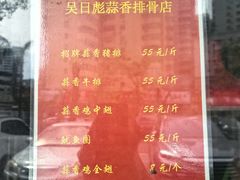 吴日彪蒜香排骨店
招牌蒜香猪排 55元/斤
蒜香牛排 55元/斤
蒜香鸡中翅 55元/斤
鱿鱼圈 55元/斤
蒜香鸡全翅 元/个